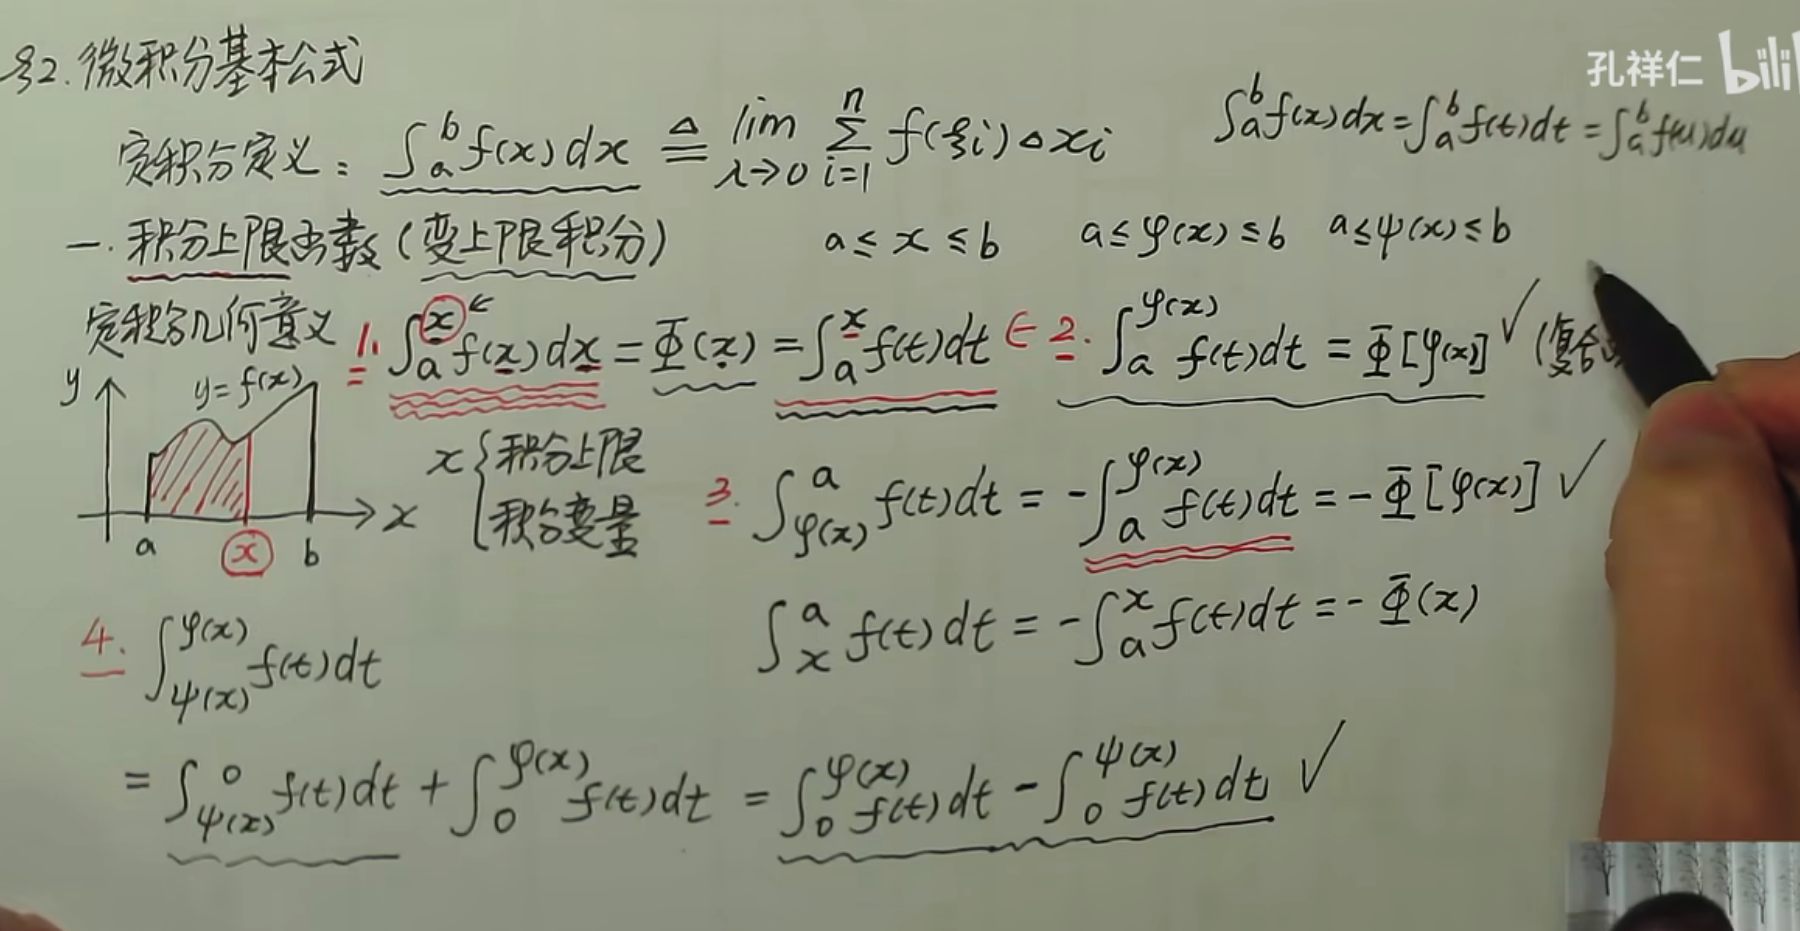 §2. 微积分基本公式
孔祥仁 bili
定积分定义: ∫_a^b f(x)dx ≜ lim_{λ→0} Σ_{i=1}^n f(ξi)△xi
∫_a^b f(x)dx = ∫_a^b f(t)dt = ∫_a^b f(u)du
一. 积分上限函数 (变上限积分)
a ≤ x ≤ b a ≤ φ(x) ≤ b a ≤ ψ(x) ≤ b
定积分几何意义
1. ∫_a^x f(x)dx = Φ(x) = ∫_a^x f(t)dt ∈ 2. ∫_a^{φ(x)} f(t)dt = Φ[φ(x)] ✓ (复合
y y=f(x)
a x b x
x { 积分上限
积分变量
3. ∫_{φ(x)}^a f(t)dt = -∫_a^{φ(x)} f(t)dt = -Φ[φ(x)] ✓
∫_x^a f(t)dt = -∫_a^x f(t)dt = -Φ(x)
4. ∫_{ψ(x)}^{φ(x)} f(t)dt
= ∫_{ψ(x)}^0 f(t)dt + ∫_0^{φ(x)} f(t)dt = ∫_0^{φ(x)} f(t)dt - ∫_0^{ψ(x)} f(t)dt ✓